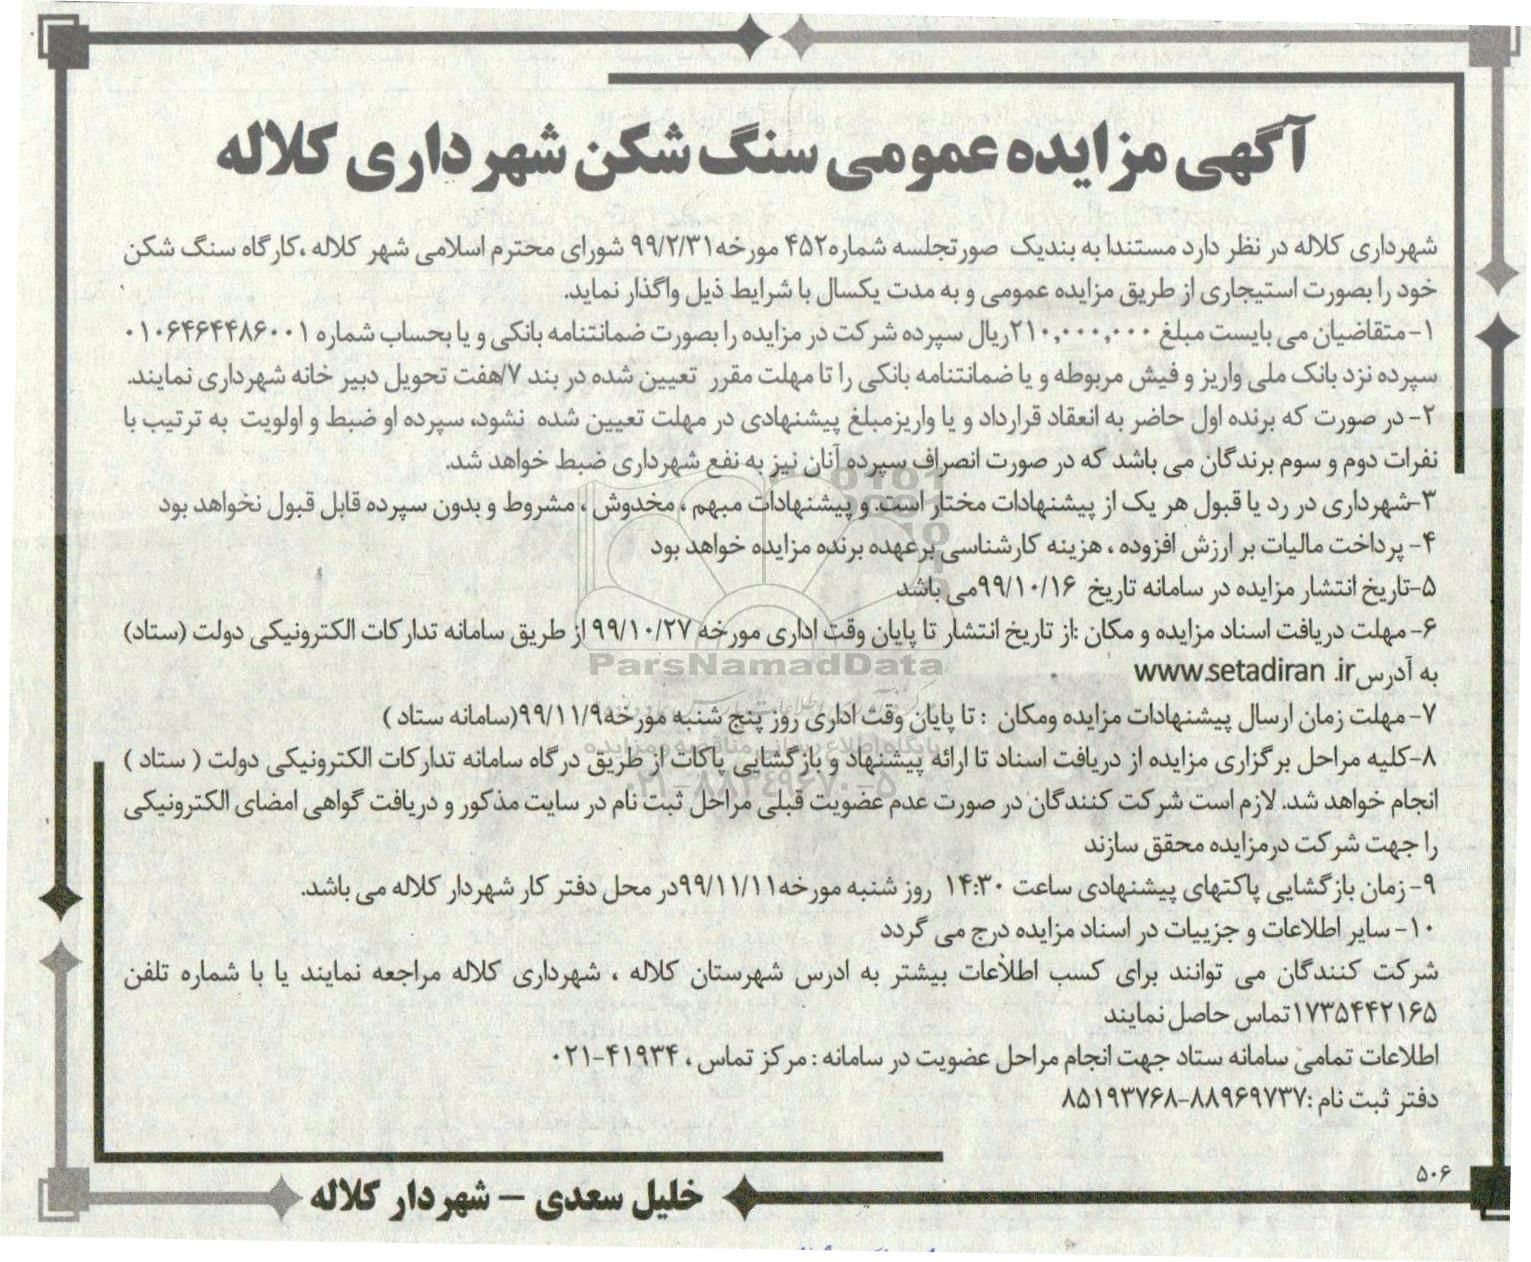 آگهی مزایده عمومی سنگ شکن شهرداری کلاله
شهرداری کلاله در نظر دارد مستندا به بندیک صورتجلسه شماره۴۵۲ مورخه۹۹/۲/۳۱ شورای محترم اسلامی شهر کلاله ،کارگاه سنگ شکن
خود را بصورت استیجاری از طریق مزایده عمومی و به مدت یکسال با شرایط ذیل واگذار نماید.
۱- متقاضیان می بایست مبلغ ۲۱۰,۰۰۰,۰۰۰ریال سپرده شرکت در مزایده را بصورت ضمانتنامه بانکی و یا بحساب شماره ۰۱۰۶۴۶۴۴۸۶۰۰۱
سپرده نزد بانک ملی واریز و فیش مربوطه و یا ضمانتنامه بانکی را تا مهلت مقرر تعیین شده در بند ۷/هفت تحویل دبیر خانه شهرداری نمایند.
۲- در صورت که برنده اول حاضر به انعقاد قرارداد و یا واریزمبلغ پیشنهادی در مهلت تعیین شده نشود، سپرده او ضبط و اولویت به ترتیب با
نفرات دوم و سوم برندگان می باشد که در صورت انصراف سپرده آنان نیز به نفع شهرداری ضبط خواهد شد.
۳-شهرداری در رد یا قبول هر یک از پیشنهادات مختار است. و پیشنهادات مبهم ، مخدوش ، مشروط و بدون سپرده قابل قبول نخواهد بود
۴- پرداخت مالیات بر ارزش افزوده ، هزینه کارشناسی برعهده برنده مزایده خواهد بود
۵-تاریخ انتشار مزایده در سامانه تاریخ ۹۹/۱۰/۱۶می باشد
۶- مهلت دریافت اسناد مزایده و مکان :از تاریخ انتشار تا پایان وقت اداری مورخه ۹۹/۱۰/۲۷ از طریق سامانه تدارکات الکترونیکی دولت (ستاد)
ParsNamadData
به آدرسwww.setadiran .ir
۷- مهلت زمان ارسال پیشنهادات مزایده ومکان : تا پایان وقت اداری روز پنج شنبه مورخه۹۹/۱۱/۹(سامانه ستاد )
پایگاه اطلاع رسانی مناقصه و مزایده
۸-کلیه مراحل برگزاری مزایده از دریافت اسناد تا ارائه پیشنهاد و بازگشایی پاکات از طریق درگاه سامانه تدارکات الکترونیکی دولت ( ستاد )
۰۲۱-۸۸۳۴۹۶۷۰-۵
انجام خواهد شد. لازم است شرکت کنندگان در صورت عدم عضویت قبلی مراحل ثبت نام در سایت مذکور و دریافت گواهی امضای الکترونیکی
را جهت شرکت درمزایده محقق سازند
۹- زمان بازگشایی پاکتهای پیشنهادی ساعت ۱۴:۳۰ روز شنبه مورخه۹۹/۱۱/۱۱در محل دفتر کار شهردار کلاله می باشد.
۱۰- سایر اطلاعات و جزییات در اسناد مزایده درج می گردد
شرکت کنندگان می توانند برای کسب اطلاعات بیشتر به ادرس شهرستان کلاله ، شهرداری کلاله مراجعه نمایند یا با شماره تلفن
۱۷۳۵۴۴۲۱۶۵تماس حاصل نمایند
اطلاعات تمامی سامانه ستاد جهت انجام مراحل عضویت در سامانه : مرکز تماس ، ۴۱۹۳۴-۰۲۱
دفتر ثبت نام :۸۸۹۶۹۷۳۷-۸۵۱۹۳۷۶۸
۵۰۶
خلیل سعدی – شهردار کلاله